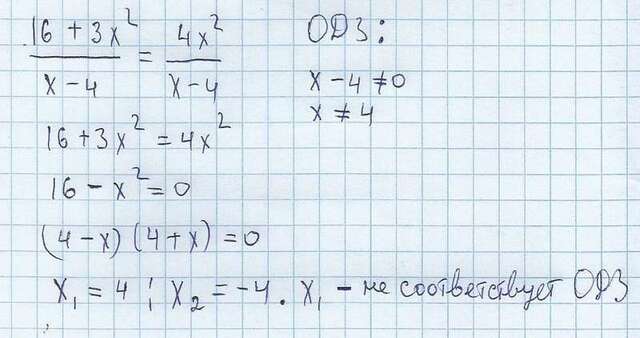 (16 + 3x²)/(x − 4) = 4x²/(x − 4)
ОДЗ:
x − 4 ≠ 0
x ≠ 4
16 + 3x² = 4x²
16 − x² = 0
(4 − x)(4 + x) = 0
x₁ = 4 ; x₂ = −4. x₁ − не соответствует ОДЗ